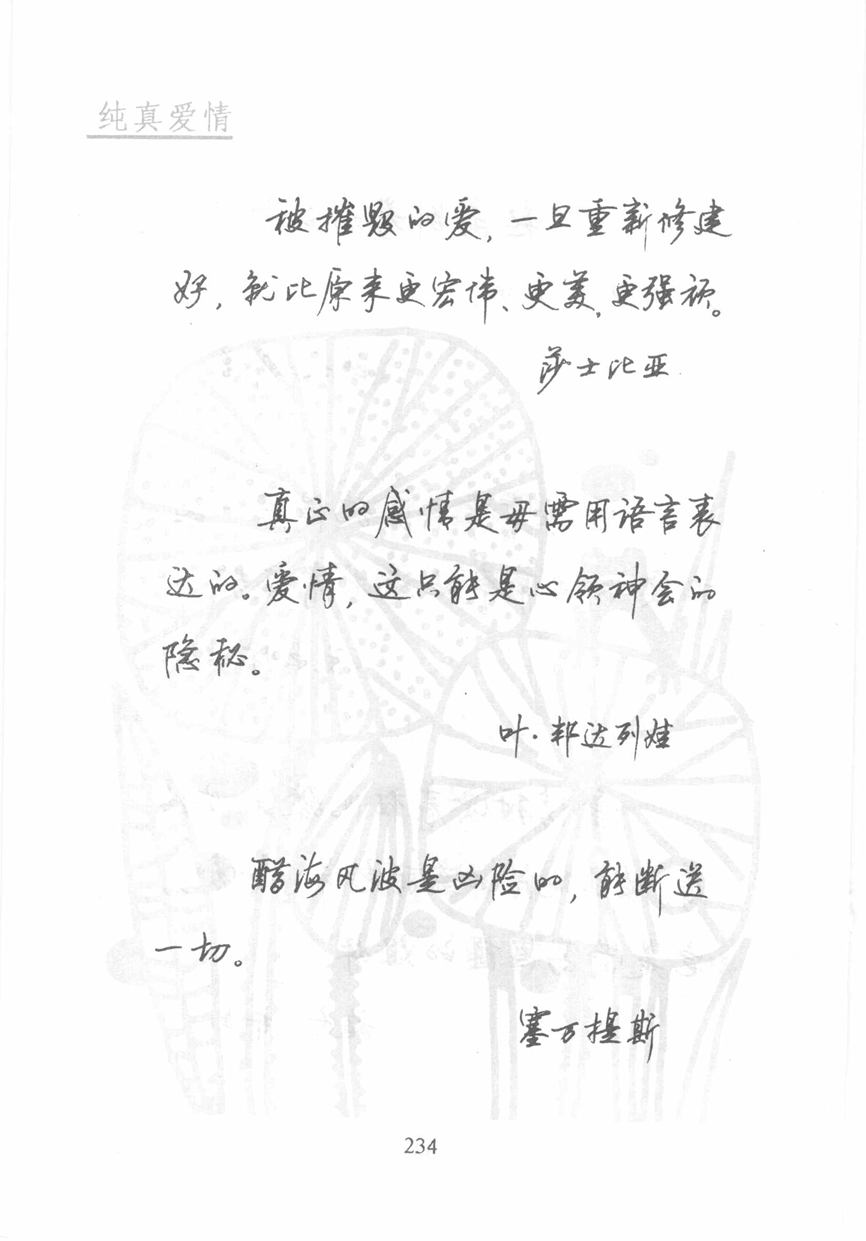 纯真爱情
被摧毁的爱，一旦重新修建
好，就比原来更宏伟、更美，更强顽。
莎士比亚
真正的感情是毋需用语言表
达的。爱情，这只能是心领神会的
隐秘。
叶·邦达列娃
醋海风波是凶险的，能断送
一切。
塞万提斯
234